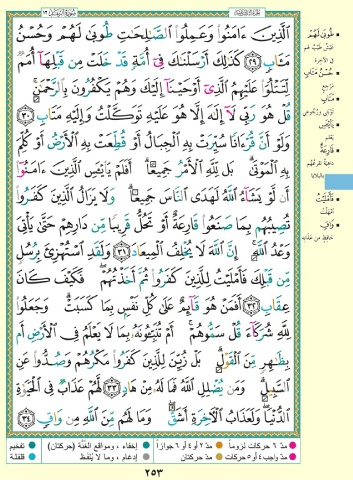 الجزء الثالث عشر
سورة الرعد ١٣
الَّذِينَ ءَامَنُوا وَعَمِلُوا الصَّالِحَاتِ طُوبَى لَهُمْ وَحُسْنُ
مَـَٔابٍ ٢٩ كَذَلِكَ أَرْسَلْنَاكَ فِي أُمَّةٍ قَدْ خَلَتْ مِن قَبْلِهَا أُمَمٌ
لِّتَتْلُوَا عَلَيْهِمُ الَّذِي أَوْحَيْنَا إِلَيْكَ وَهُمْ يَكْفُرُونَ بِالرَّحْمَنِ
قُلْ هُوَ رَبِّي لَا إِلَهَ إِلَّا هُوَ عَلَيْهِ تَوَكَّلْتُ وَإِلَيْهِ مَتَابِ ٣٠
وَلَوْ أَنَّ قُرْءَانًا سُيِّرَتْ بِهِ الْجِبَالُ أَوْ قُطِّعَتْ بِهِ الْأَرْضُ أَوْ كُلِّمَ
بِهِ الْمَوْتَى بَل لِّلَّهِ الْأَمْرُ جَمِيعًا أَفَلَمْ يَا۟يْـَٔسِ الَّذِينَ ءَامَنُوا
أَن لَّوْ يَشَاءُ اللَّهُ لَهَدَى النَّاسَ جَمِيعًا وَلَا يَزَالُ الَّذِينَ كَفَرُوا
تُصِيبُهُم بِمَا صَنَعُوا قَارِعَةٌ أَوْ تَحُلُّ قَرِيبًا مِّن دَارِهِمْ حَتَّى يَأْتِيَ
وَعْدُ اللَّهِ إِنَّ اللَّهَ لَا يُخْلِفُ الْمِيعَادَ ٣١ وَلَقَدِ اسْتُهْزِئَ بِرُسُلٍ
مِّن قَبْلِكَ فَأَمْلَيْتُ لِلَّذِينَ كَفَرُوا ثُمَّ أَخَذْتُهُمْ فَكَيْفَ كَانَ
عِقَابِ ٣٢ أَفَمَنْ هُوَ قَائِمٌ عَلَى كُلِّ نَفْسٍ بِمَا كَسَبَتْ وَجَعَلُوا
لِلَّهِ شُرَكَاءَ قُلْ سَمُّوهُمْ أَمْ تُنَبِّـُٔونَهُ بِمَا لَا يَعْلَمُ فِي الْأَرْضِ أَم
بِظَاهِرٍ مِّنَ الْقَوْلِ بَلْ زُيِّنَ لِلَّذِينَ كَفَرُوا مَكْرُهُمْ وَصُدُّوا عَنِ
السَّبِيلِ وَمَن يُضْلِلِ اللَّهُ فَمَا لَهُ مِنْ هَادٍ ٣٣ لَّهُمْ عَذَابٌ فِي الْحَيَوٰةِ
الدُّنْيَا وَلَعَذَابُ الْآخِرَةِ أَشَقُّ وَمَا لَهُم مِّنَ اللَّهِ مِن وَاقٍ ٣٤
طوبى لهم
حسن مآب
مرجع
قارعة
فأمليت
أمهلت
واق
مدّ ٦ حركات لزوماً
مدّ ٢ أو ٤ أو ٦ جوازاً
إخفاء، ومواقع الغُنّة (حركتان)
تفخيم
مدّ واجب ٤ أو ٥ حركات
مدّ حركتان
إدغام، وما لا يُلفظ
قلقلة
٢٥٣